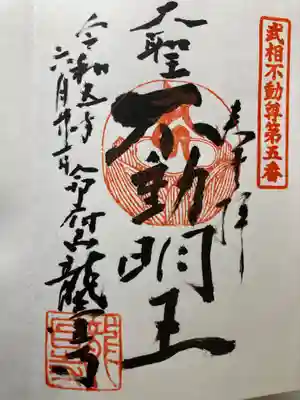 武相不動尊第五番
奉拝
大聖
不動明王
令和五年
六月廿一日
龍